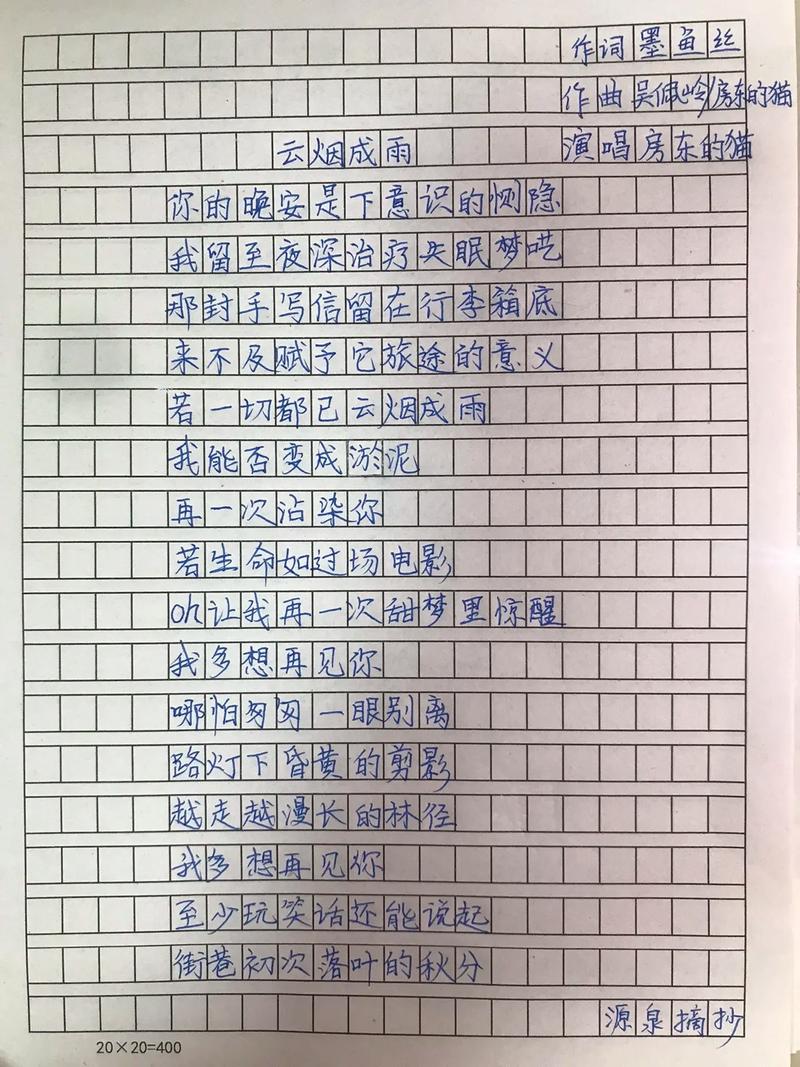 作词墨鱼丝
作曲吴佩岭/房东的猫
云烟成雨 演唱房东的猫
你的晚安是下意识的恻隐
我留至夜深治疗失眠梦呓
那封手写信留在行李箱底
来不及赋予它旅途的意义
若一切都已云烟成雨
我能否变成淤泥
再一次沾染你
若生命如过场电影
oh让我再一次甜梦里惊醒
我多想再见你
哪怕匆匆一眼别离
路灯下昏黄的剪影
越走越漫长的林径
我多想再见你
至少玩笑话还能说起
街巷初次落叶的秋分
源泉摘抄
20×20=400